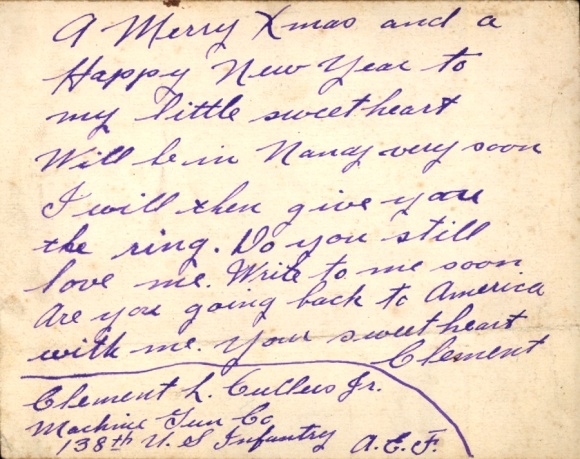 A Merry Xmas and a
Happy New Year to
my little sweetheart
Will be in Nancy very soon
I will then give you
the ring. Do you still
love me. Write to me soon
Are you going back to America
with me. Your sweetheart
Clement
Clement L. Cullers Jr.
Machine Gun Co
138th U. S Infantry A.E.F.